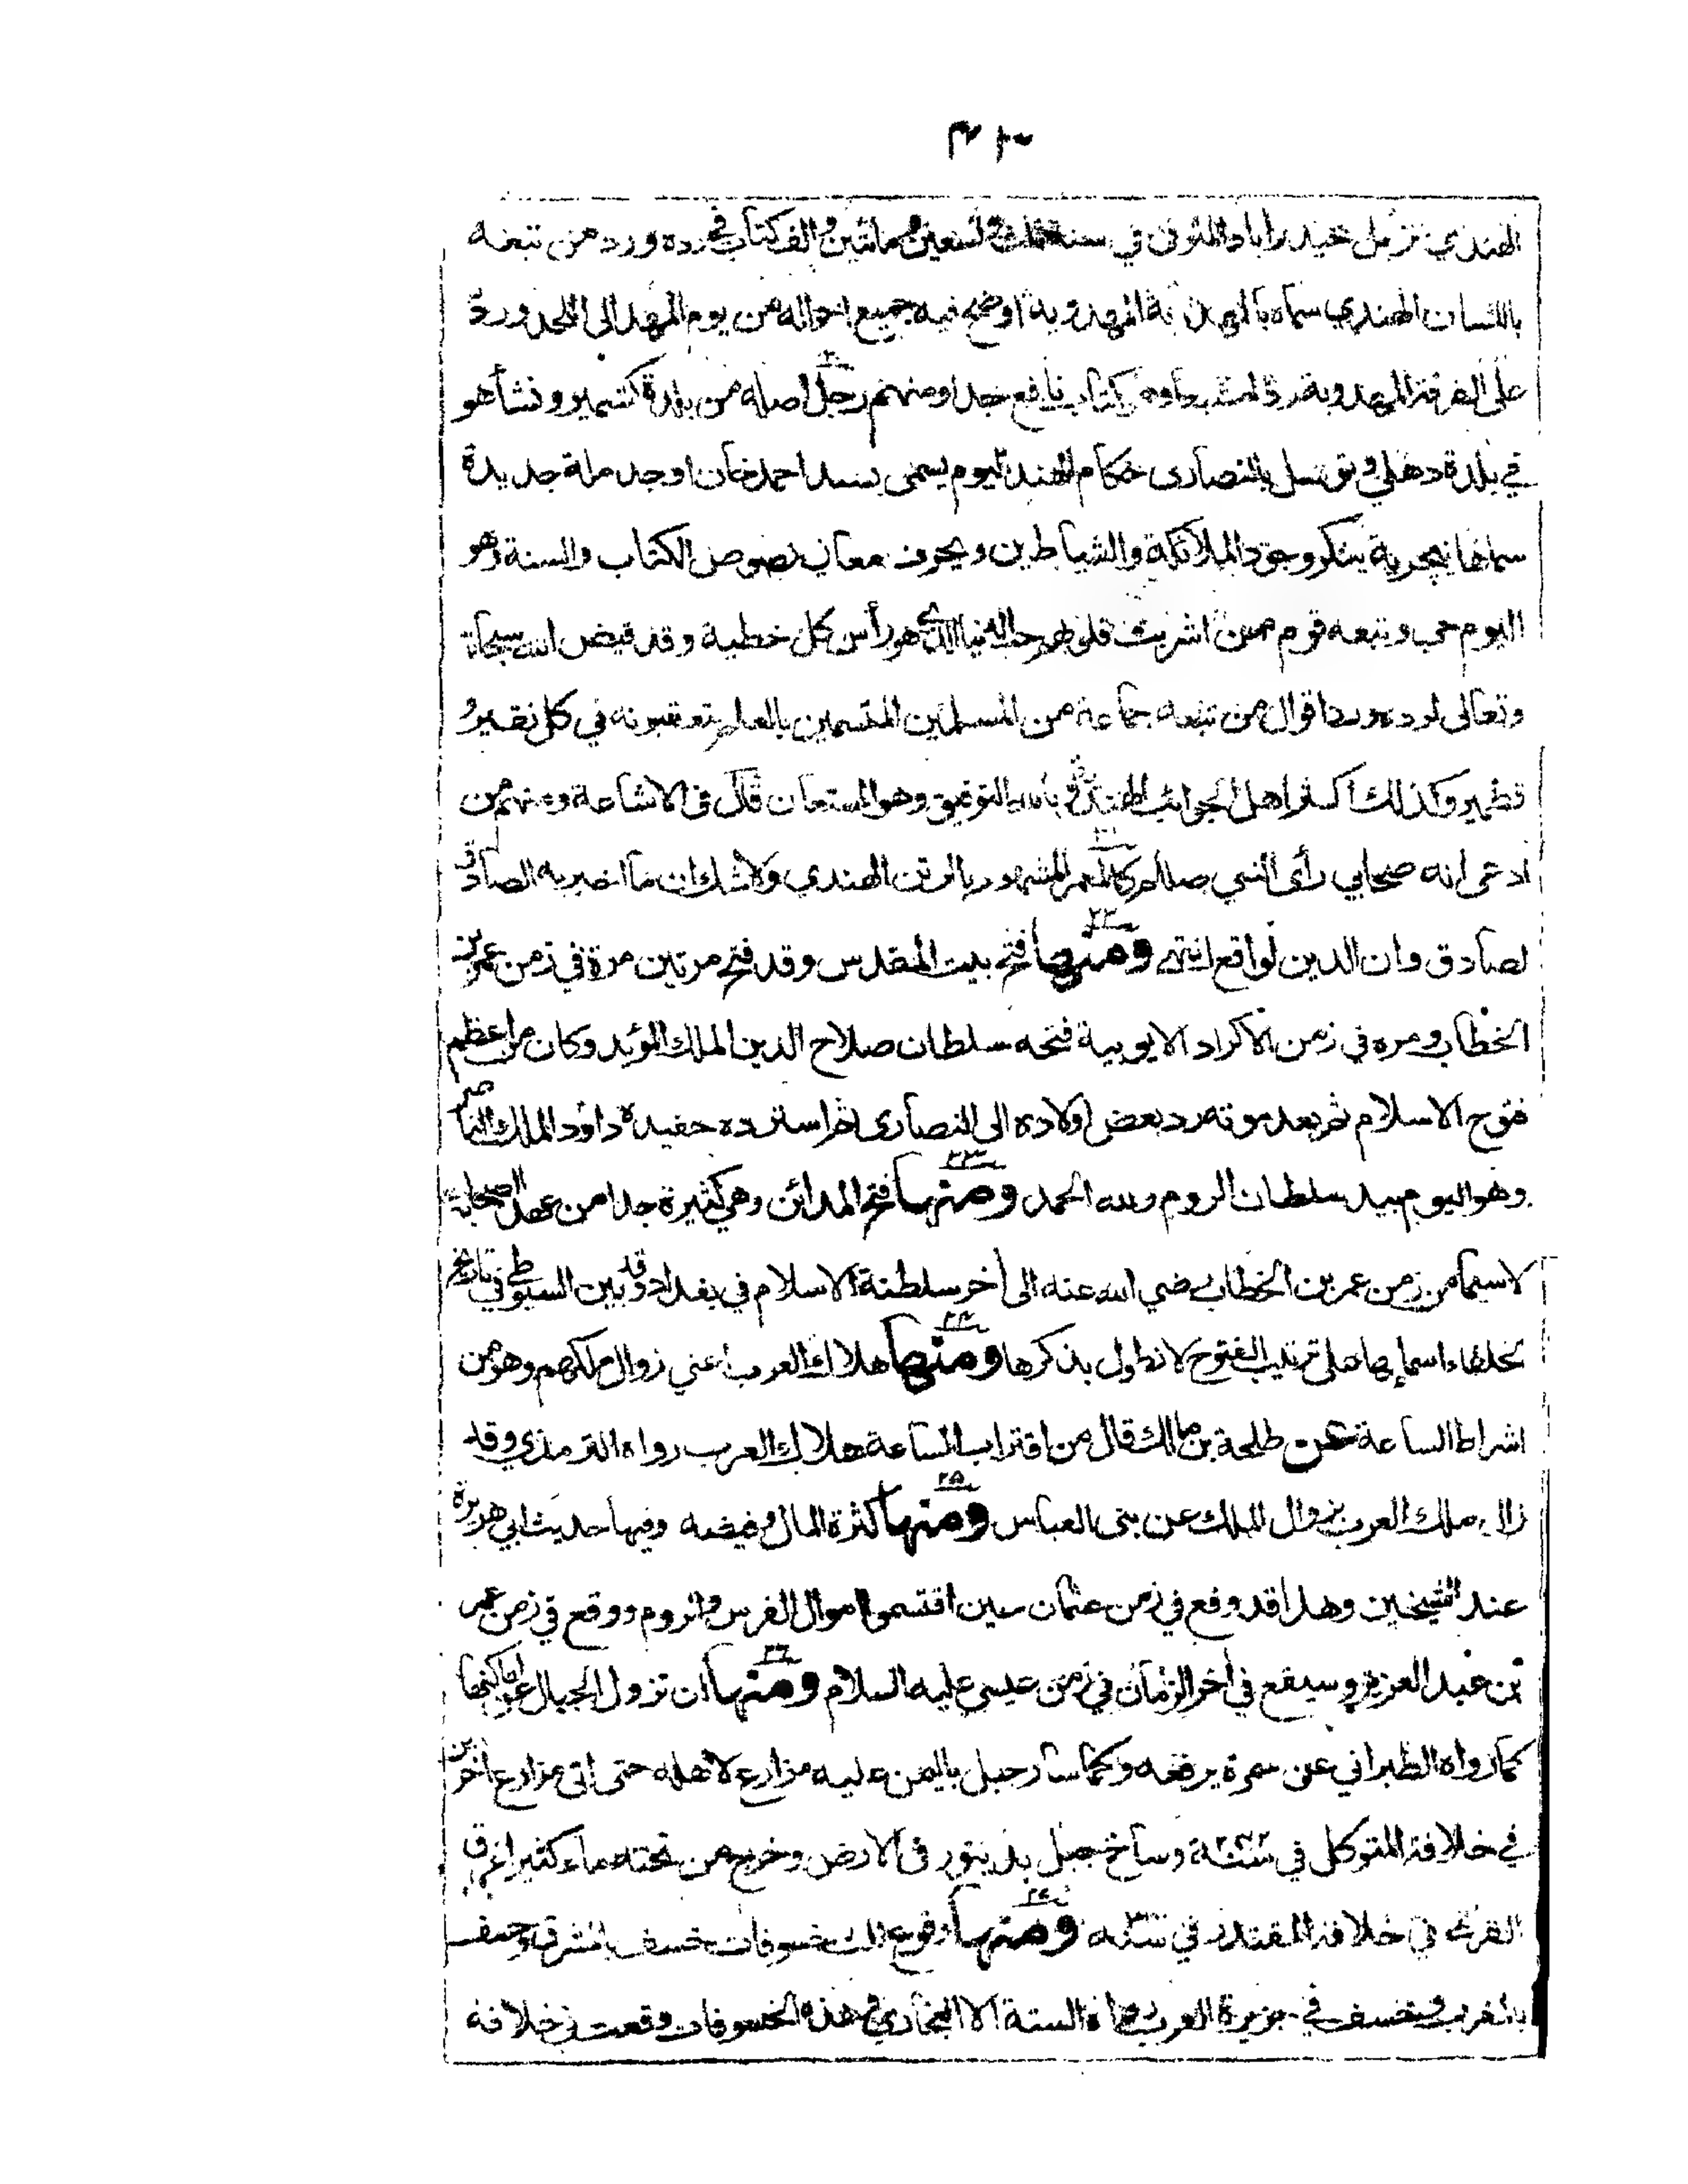 الهندي نزيل حيدراباد المتوفى في سنة وتسعين ومائتين والف كتاب في رده ورد من تبعه
باللسان الهندي سماه بالهدية المهدوية اوضح فيه جميع احواله من يوم المهد الى اللحد ورد
على الفرقة المهدوية وهو كتاب نافع جدا ومنهم رجل اصله من بلدة كشمير ونشأ هو
في بلدة دهلي وتوسل بالنصارى حكام الهند اليوم يسمى بسيد احمد خان اوجد ملة جديدة
سماها نيچرية ينكر وجود الملائكة والشياطين ويحرف معاني نصوص الكتاب والسنة وهو
اليوم حي وتبعه قوم ممن اشربت قلوبهم حب الدنيا الذي هو رأس كل خطية وقد قيض الله سبحانه
وتعالى لرده ورد اقوال من تبعه جماعة من المسلمين المتسمين بالعلم يتعقبونه في كل نقير و
قطمير وكذلك اكثر اهل الجوائب الهندية وبالله التوفيق وهو المستعان قال فى الاشاعة ومنهم من
ادعى انه صحابي رأى النبي صللم كالمعمر المشهور بالرتن الهندي ولا شك ان ما اخبر به الصادق
لصادق وان الدين لواقع انتهى ٢٢ ومنها فتح بيت المقدس وقد فتح مرتين مرة في زمن عمر بن
الخطاب ومرة في زمن الاكراد الايوبية فتحه سلطان صلاح الدين الملك المؤيد وكان من اعظم
فتوح الاسلام ثم بعد موته رد بعض اولاده الى النصارى ثم استرده حفيده داود الملك الناصر
وهو اليوم بيد سلطان الروم ولله الحمد ٢٣ ومنها فتح المدائن وهي كثيرة جدا من عهد الصحابة
لاسيما من زمن عمر بن الخطاب رضي الله عنه الى أخر سلطنة الاسلام في بغداد وقد بين السيوطي في تاريخ
الخلفاء اسماءها على ترتيب الفتوح لا نطول بذكرها ٢٤ ومنها هلاك العرب اعني زوال ملكهم وهو من
اشراط الساعة عن طلحة بن مالك قال من اقتراب الساعة هلاك العرب رواه الترمذي وقد
زال ملك العرب بزوال الملك عن بني العباس ٢٥ ومنها كثرة المال وفيضه وفيها حديث ابي هريرة
عند الشيخين وهذا قد وقع في زمن عثمان حين اقتسموا اموال الفرس والروم ووقع في زمن عمر
بن عبد العزيز وسيقع في أخر الزمان في زمن عيسى عليه السلام ٢٦ ومنها ان تزول الجبال عن اماكنها
كما رواه الطبراني عن سمرة يرفعه وكما سار جبل باليمن عليه مزارع لاهله حتى اتى مزارع أخرين
في خلافة المتوكل في سنة وساخ جبل بدينور في الارض وخرج من تحته ماء كثير اغرق
القرى في خلافة المقتدر في سنة ٢٧ ومنها وقوع ثلث خسوفات خسف بالمشرق وخسف
بالمغرب وخسف في جزيرة العرب رواه الستة الا البخاري وهذه الخسوفات وقعت في خلافة